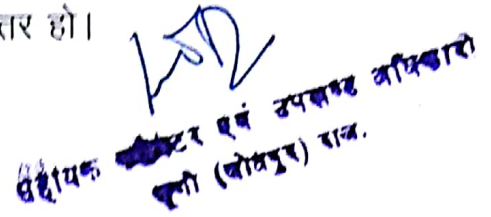 तर हो।
सहायक कलेक्टर एवं उपखण्ड अधिकारी
(जोधपुर) राज.